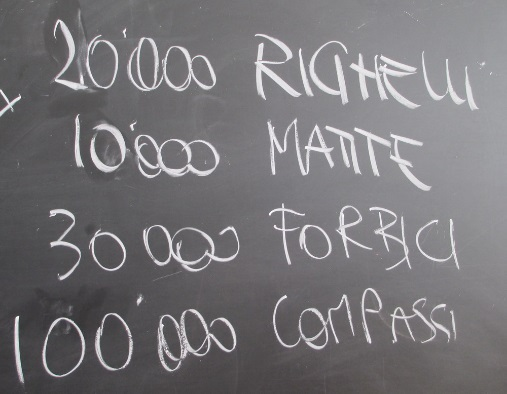 20'000 RIGHELLI
10'000 MATITE
30 000 FORBICI
100'000 COMPASSI